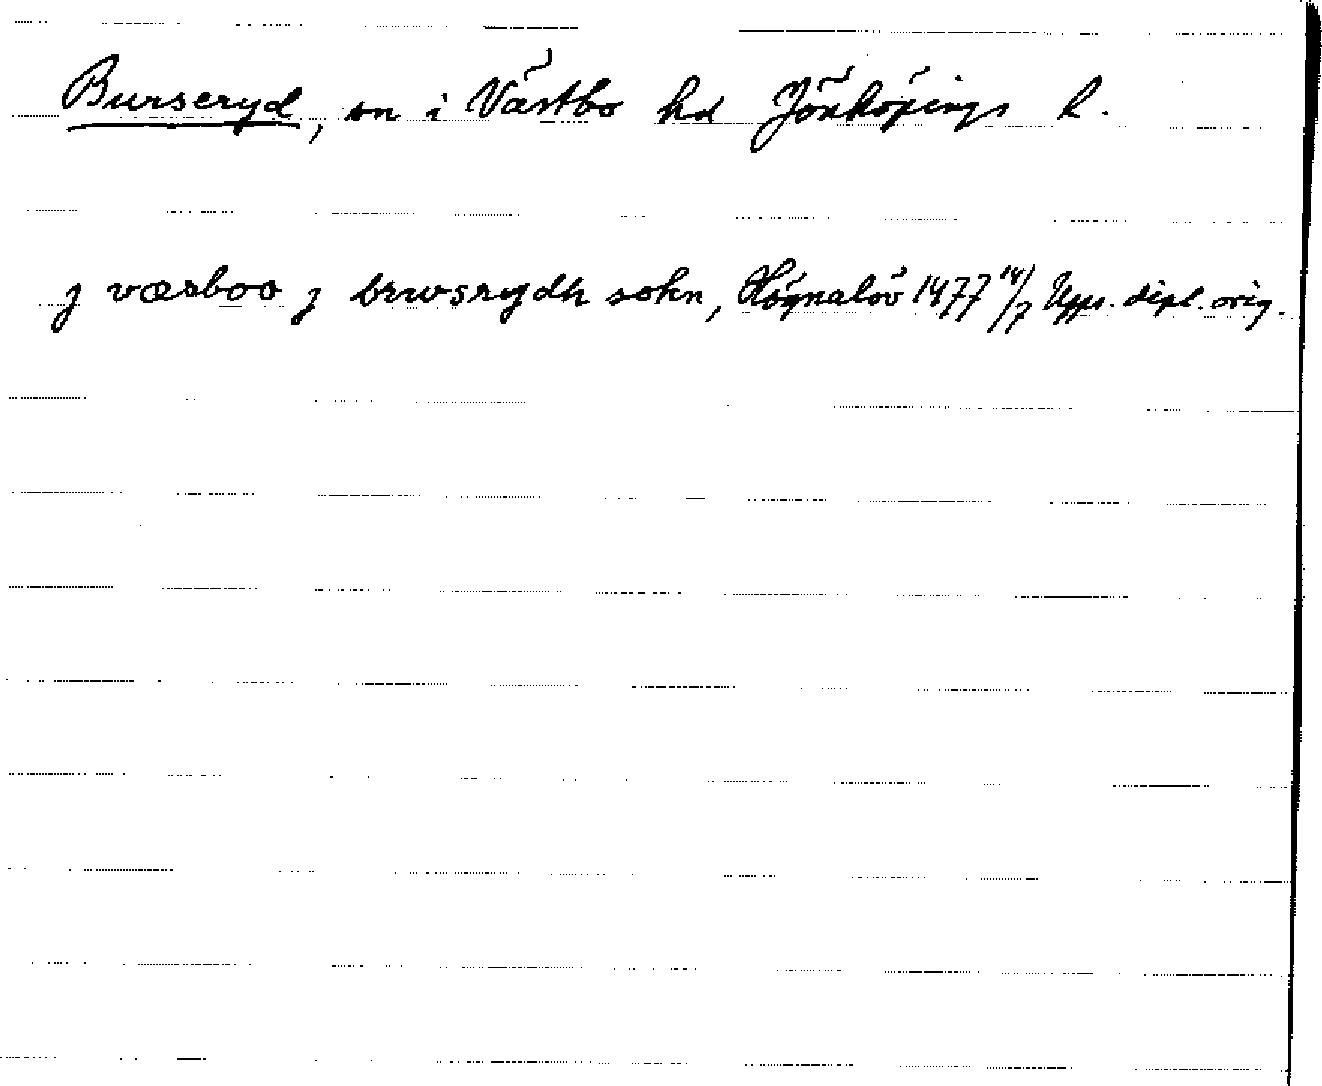 Burseryd, sn i Västbo hd Jönköpings l.
j væsboo j brwsrydh sokn, Högnalöv 1477 14/7 Upps. dipl. orig.